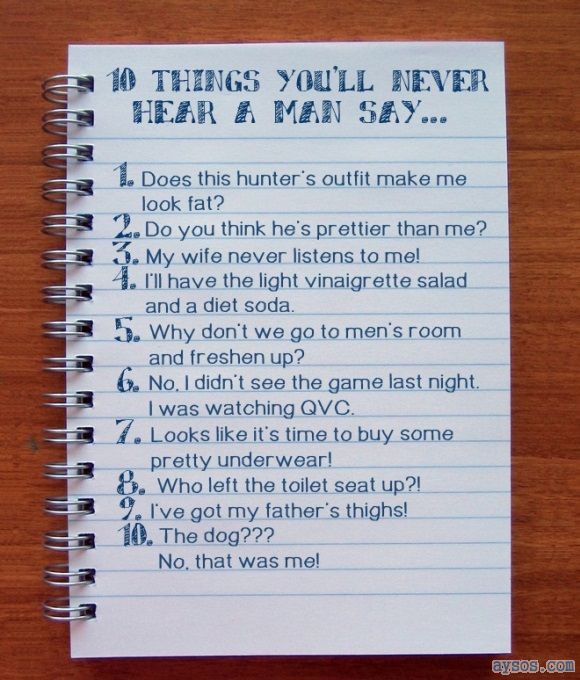 10 THINGS YOU'LL NEVER
HEAR A MAN SAY...
1. Does this hunter's outfit make me
look fat?
2. Do you think he's prettier than me?
3. My wife never listens to me!
4. I'll have the light vinaigrette salad
and a diet soda.
5. Why don't we go to men's room
and freshen up?
6. No, I didn't see the game last night.
I was watching QVC.
7. Looks like it's time to buy some
pretty underwear!
8. Who left the toilet seat up?!
9. I've got my father's thighs!
10. The dog???
No, that was me!
aysos.com